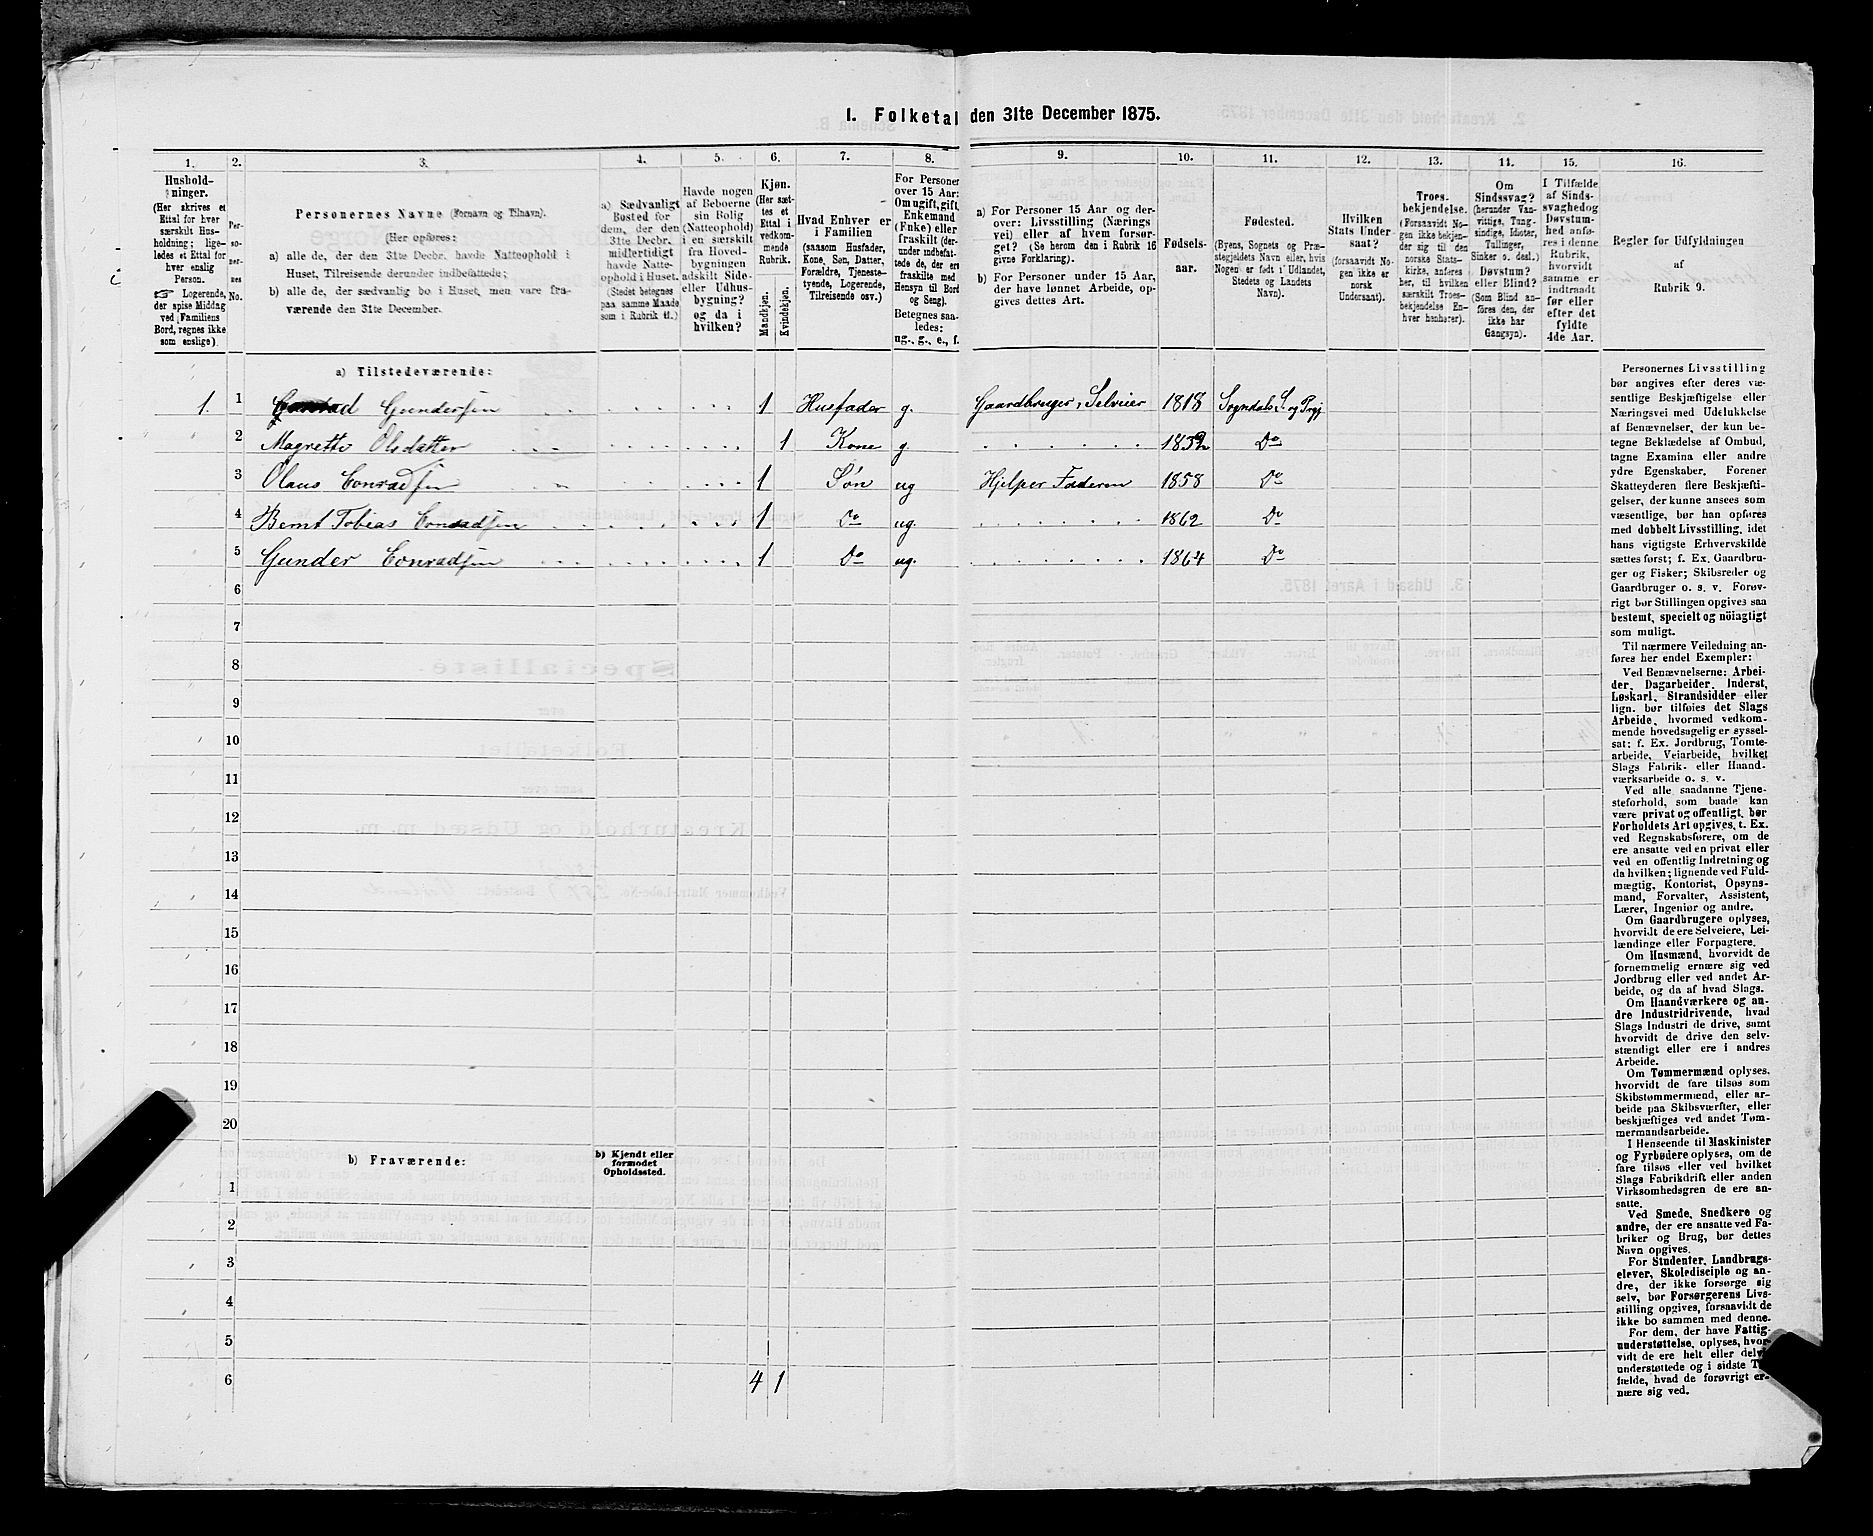 1. Folketal den 31te December 1875.
1. 2. 3. 4. 5. 6. 7. 8. 9. 10. 11. 12. 13. 14. 15. 16.
Hushold-
ninger.
(Her skrives et
Ettal for hver
særskilt Hus-
holdning; lige-
ledes et Ettal for
hver enslig
Person.
☞ Logerende,
der spise Middag
ved Familiens
Bord, regnes ikke
som enslige).
Per-
so-
ner-
nes
No.
Personernes Navne (Fornavn og Tilnavn).
(Her opføres:
a) alle de, der den 31te Decbr. havde Natteophold i
Huset, Tilreisende derunder indbefattede;
b) alle de, der sædvanlig bo i Huset, men vare fra-
værende den 31te December.
a) Sædvanligt
Bosted for
dem, der den
31te Decbr.
midlertidigt
havde Natte-
ophold i Huset.
(Stedet betegnes
paa samme Maade
som i Rubrik 11.)
Havde nogen
af Beboerne
sin Bolig
(Natteophold)
i en særskilt
fra Hoved-
bygningen
adskilt Side-
eller Udhus-
bygning?
og da i
hvilken?
Kjøn.
(Her sæt-
tes et
Ettal i
vedkom-
mende
Rubrik.
Mandkjøn.
Kvindekjøn.
Hvad Enhver er
i Familien
(saasom Husfader,
Kone, Søn, Datter,
Forældre, Tjeneste-
tyende, Logerende,
Tilreisende osv.)
For Personer
over 15 Aar:
Om ugift, gift,
Enkemand
(Enke) eller
fraskilt (der-
under indbefat-
tede de, der ere
fraskilte med
Hensyn til Bord
og Seng).
Betegnes saa-
ledes:
ug., g., e., f.
a) For Personer 15 Aar og der-
over: Livsstilling (Nærings-
vei) eller af hvem forsør-
get? (Se herom den i Rubrik 16
givne Forklaring).
b) For Personer under 15 Aar,
der have lønnet Arbeide, op-
gives dettes Art.
Fødsels-
aar.
Fødested.
(Byens, Sognets og Præ-
stegjeldets Navn eller, hvis
Nogen er født i Udlandet,
Stedets og Landets
Navn).
Hvilken
Stats Under-
saat?
(forsaavidt No-
gen ikke er
norsk
Undersaat).
Troes-
bekjendelse.
(Forsaavidt No-
gen ikke bekjen-
der sig til den
norske Stats-
kirke, anføres
her, til hvilken
særskilt Troes-
bekjendelse En-
hver henhører).
Om
Sindssvag?
(herunder Van-
vittige, Tung-
sindige, Idioter,
Tullinger,
Sinker o. desl.)
Døvstum?
eller Blind?
(Som Blind an-
føres den, der
ikke har
Gangsyn).
I Tilfælde
af Sinds-
svaghed og
Døvstum-
hed anfø-
res i denne
Rubrik,
hvorvidt
samme er
indtraadt
før eller
efter det
fyldte
4de Aar.
Regler for Udfyldningen
af
Rubrik 9.
a) Tilstedeværende:
1. 1 Conrad Gundersen 1 Husfader g. Gaardbruger, Selveier 1818 Sogndals S. og Prgj
2 Magrette Olsdatter 1 Kone g 1832 Do
3 Olaus Conradsen 1 Søn ug Hjelper Faderen 1858 Do
4 Bernt Tobias Conradsen 1 Do ug. 1862 Do
5 Gunder Conradsen 1 Do ug. 1864 Do
6
7
8
9
10
11
12
13
14
15
16
17
18
19
20
b) Fraværende:
b) Kjendt eller
formodet
Opholdssted.
1
2
3
4
5
6 4 1
Personernes Livsstilling
bør angives efter deres væ-
sentlige Beskjæftigelse eller
Næringsvei med Udelukkelse
af Benævnelser, der kun be-
tegne Beklædelse af Ombud,
tagne Examina eller andre
ydre Egenskaber. Forener
Skatteyderen flere Beskjæfti-
gelser, der kunne ansees som
væsentlige, bør han opføres
med dobbelt Livsstilling, idet
hans vigtigste Erhvervskilde
sættes først; f. Ex. Gaardbru-
ger og Fisker; Skibsreder og
Gaardbruger o. s. v. Forøv-
rigt bør Stillingen opgives saa
bestemt, specielt og nöiagtigt
som muligt.
Til nærmere Veiledning an-
føres her endel Exempler:
Ved Benævnelserne: Arbei-
der, Dagarbeider, Inderst,
Løskarl, Strandsidder eller
lign. bør tilføies det Slags
Arbeide, hvormed vedkom-
mende hovedsagelig er syssel-
sat; f. Ex. Jordbrug, Tomte-
arbeide, Veiarbeide, hvilket
Slags Fabrik- eller Haand-
værksarbeide o. s. v.
Ved alle saadanne Tjene-
steforhold, som baade kan
være privat og offentligt, bør
Forholdets Art opgives, t. Ex.
ved Regnskabsførere, om de
ere ansatte ved en privat eller
ved en offentlig Indretning og
da hvilken; lignende ved Fuld-
mægtig, Kontorist, Opsyns-
mand, Forvalter, Assistent,
Lærer, Ingeniør og andre.
Om Gaardbrugere oplyses,
hvorvidt de ere Selveiere, Lei-
lændinge eller Forpagtere.
Om Husmænd, hvorvidt de
fornemmelig ernære sig ved
Jordbrug eller ved andet Ar-
beide, og da af hvad Slags.
Om Haandværkere og an-
dre Industridrivende, hvad
Slags Industri de drive, samt
hvorvidt de drive den selv-
stændigt eller ere i andres
Arbeide.
Om Tømmermænd oplyses,
hvorvidt de fare tilsøs som
Skibstømmermænd, eller ar-
beide paa Skibsværfter, eller
beskjæftiges ved andet Tøm-
mermandsarbeide.
I Henseende til Maskinister
og Fyrbødere oplyses, om de
fare tilsøs eller ved hvilket
Slags Fabrikdrift eller anden
Virksomhedsgren de ere an-
satte.
Ved Smede, Snedkere og
andre, der ere ansatte ved Fa-
briker og Brug, bør dettes
Navn opgives.
For Studenter, Landbrugs-
elever, Skoledisciple og an-
dre, der ikke forsørge sig
selv, bør Forsørgerens Livs-
stilling opgives, forsaavidt de
ikke bo sammen med denne.
For dem, der have Fattig-
understøttelse, oplyses, hvor-
vidt de ere helt eller delvis
understøttede og i sidste Til-
fælde, hvad de forøvrigt er-
nære sig ved.